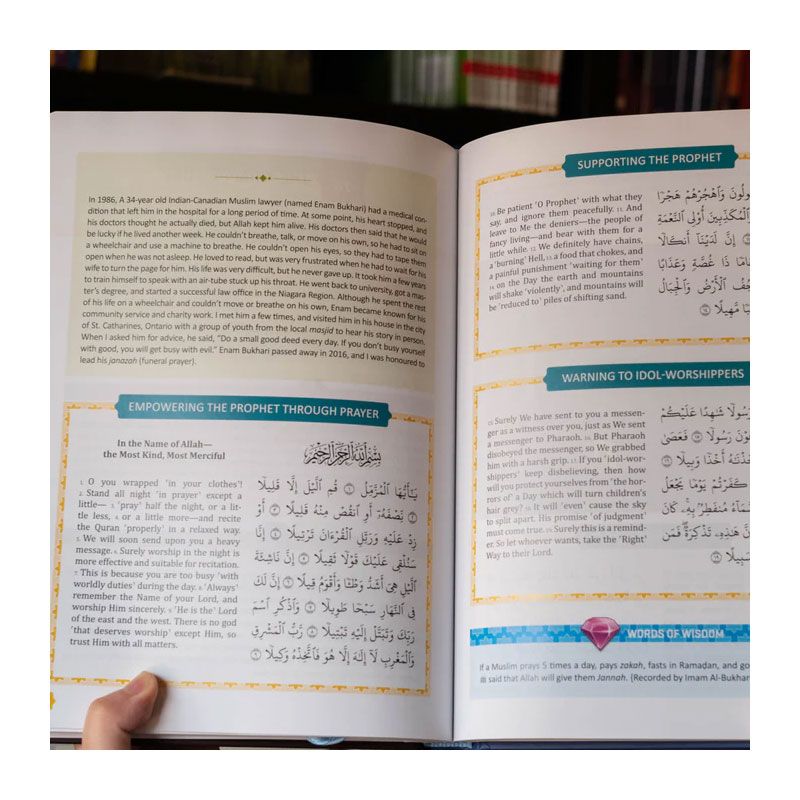 In 1986, A 34-year old Indian-Canadian Muslim lawyer (named Enam Bukhari) had a medical con-
dition that left him in the hospital for a long period of time. At some point, his heart stopped, and
his doctors thought he actually died, but Allah kept him alive. His doctors then said that he would
be lucky if he lived another week. He couldn't breathe, talk, or move on his own, so he had to sit on
a wheelchair and use a machine to breathe. He couldn't open his eyes, so they had to tape them
open when he was not asleep. He loved to read, but was very frustrated when he had to wait for his
wife to turn the page for him. His life was very difficult, but he never gave up. It took him a few years
to train himself to speak with an air-tube stuck up his throat. He went back to university, got a mas-
ter's degree, and started a successful law office in the Niagara Region. Although he spent the rest
of his life on a wheelchair and couldn't move or breathe on his own, Enam became known for his
community service and charity work. I met him a few times, and visited him in his house in the city
of St. Catharines, Ontario with a group of youth from the local masjid to hear his story in person.
When I asked him for advice, he said, "Do a small good deed every day. If you don't busy yourself
with good, you will get busy with evil." Enam Bukhari passed away in 2016, and I was honoured to
lead his janazah (funeral prayer).
EMPOWERING THE PROPHET THROUGH PRAYER
In the Name of Allah—
the Most Kind, Most Merciful
بِسْمِ ٱللَّهِ ٱلرَّحْمَٰنِ ٱلرَّحِيمِ
1. O you wrapped 'in your clothes'!
2. Stand all night 'in prayer' except a
little— 3. 'pray' half the night, or a lit-
tle less, 4. or a little more—and recite
the Quran 'properly' in a relaxed way.
5. We will soon send upon you a heavy
message. 6. Surely worship in the night is
more effective and suitable for recitation.
7. This is because you are too busy 'with
worldly duties' during the day. 8. 'Always'
remember the Name of your Lord, and
worship Him sincerely. 9. 'He is the' Lord
of the east and the west. There is no god
'that deserves worship' except Him, so
trust Him with all matters.
يَٰٓأَيُّهَا ٱلْمُزَّمِّلُ ١ قُمِ ٱلَّيْلَ إِلَّا قَلِيلًا
٢ نِّصْفَهُۥٓ أَوِ ٱنقُصْ مِنْهُ قَلِيلًا ٣ أَوْ
زِدْ عَلَيْهِ وَرَتِّلِ ٱلْقُرْءَانَ تَرْتِيلًا ٤ إِنَّا
سَنُلْقِى عَلَيْكَ قَوْلًا ثَقِيلًا ٥ إِنَّ نَاشِئَةَ
ٱلَّيْلِ هِىَ أَشَدُّ وَطْـًٔا وَأَقْوَمُ قِيلًا ٦ إِنَّ لَكَ
فِى ٱلنَّهَارِ سَبْحًا طَوِيلًا ٧ وَٱذْكُرِ ٱسْمَ
رَبِّكَ وَتَبَتَّلْ إِلَيْهِ تَبْتِيلًا ٨ رَّبُّ ٱلْمَشْرِقِ
وَٱلْمَغْرِبِ لَآ إِلَٰهَ إِلَّا هُوَ فَٱتَّخِذْهُ وَكِيلًا ٩
SUPPORTING THE PROPHET
10. Be patient 'O Prophet' with what they
say, and ignore them peacefully. 11. And
leave to Me the deniers—the people of
fancy living—and bear with them for a
little while. 12. We definitely have chains,
a 'burning' Hell, 13. a food that chokes, and
a painful punishment 'waiting for them'
14. on the Day the earth and mountains
will shake 'violently', and mountains will
be 'reduced to' piles of shifting sand.
ولُونَ وَٱهْجُرْهُمْ هَجْرًا
وَٱلْمُكَذِّبِينَ أُو۟لِى ٱلنَّعْمَةِ
إِنَّ لَدَيْنَآ أَنكَالًا
امًا ذَا غُصَّةٍ وَعَذَابًا
جُفُ ٱلْأَرْضُ وَٱلْجِبَالُ
بًا مَّهِيلًا ١٤
WARNING TO IDOL-WORSHIPPERS
15. Surely We have sent to you a messen-
ger as a witness over you, just as We sent
a messenger to Pharaoh. 16. But Pharaoh
disobeyed the messenger, so We grabbed
him with a harsh grip. 17. If you 'idol-wor-
shippers' keep disbelieving, then how
will you protect yourselves from 'the hor-
rors of' a Day which will turn children's
hair grey? 18. It will 'even' cause the sky
to split apart. His promise 'of judgment'
must come true. 19. Surely this is a remind-
er. So let whoever wants, take the 'Right'
Way to their Lord.
رَسُولًا شَٰهِدًا عَلَيْكُمْ
عَوْنَ رَسُولًا ١٥ فَعَصَىٰ
خَذْنَٰهُ أَخْذًا وَبِيلًا ١٦
كَفَرْتُمْ يَوْمًا يَجْعَلُ
سَّمَآءُ مُنفَطِرٌۢ بِهِۦ كَانَ
نَّ هَٰذِهِۦ تَذْكِرَةٌ فَمَن
سَبِيلًا ١٩
WORDS OF WISDOM
If a Muslim prays 5 times a day, pays zakah, fasts in Ramadan, and go
ﷺ said that Allah will give them Jannah. {Recorded by Imam Al-Bukhar